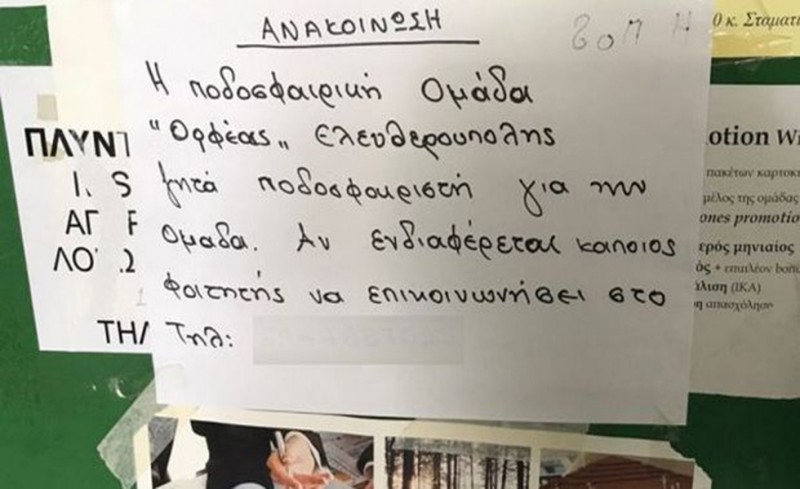 ΑΝΑΚΟΙΝΩΣΗ
Η ποδοσφαιρική Ομάδα
"Ορφέας" Ελευθερουπολης
ζητά ποδοσφαιριστή για την
ομαδα. Αν ενδιαφέρεται καποιος
φοιτητής να επικοινωνήσει στο
Τηλ:
ΠΛΥΝΤ
ΤΗΛ
0 κ. Σταματι
otion Wi
πακέτων καρτοκι
μέλος της ομάδας
ones promotio
ερός μηνιαίος
ός + επιπλέον bonu
άλιση (ΙΚΑ)
η απασχόληση